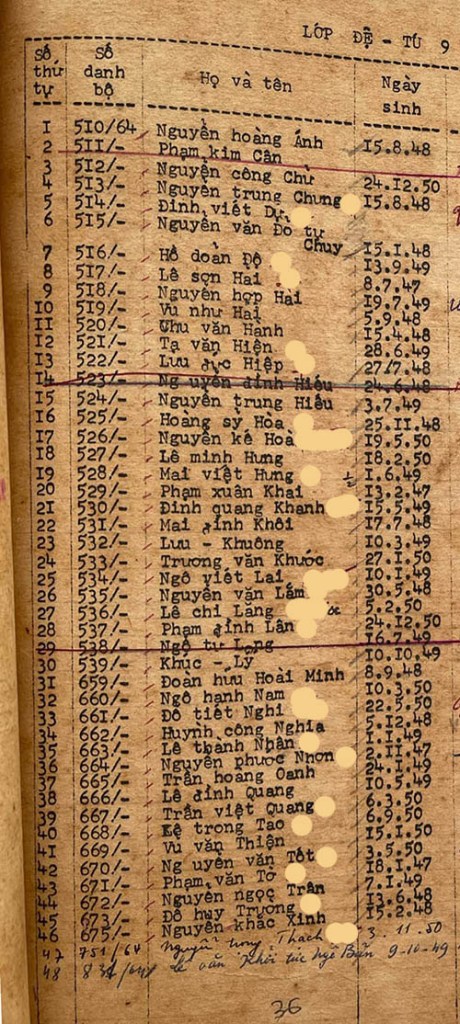 LỚP ĐỆ - TỨ 9
Số thứ tự Số danh bộ Họ và tên Ngày sinh
1 510/64 Nguyễn hoàng Ánh 15.8.48
2 511/- Phạm kim Cân
3 512/- Nguyễn công Chử 24.12.50
4 513/- Nguyễn trung Chung 15.8.48
5 514/- Đinh viết Dự
6 515/- Nguyễn văn Đo tự
Chuy 15.1.48
7 516/- Hồ doãn Độ 13.9.49
8 517/- Lê sơn Hai 8.7.47
9 518/- Nguyễn hợp Hải 19.7.49
10 519/- Vũ như Hải 5.9.48
11 520/- Chu văn Hanh 15.4.48
12 521/- Tạ văn Hiện 28.6.49
13 522/- Lưu đức Hiệp 27.7.48
14 523/- Nguyễn đình Hiếu 24.6.48
15 524/- Nguyễn trung Hiếu 3.7.49
16 525/- Hoàng sỹ Hòa 25.11.48
17 526/- Nguyễn kế Hoà 19.5.50
18 527/- Lê minh Hưng 18.2.50
19 528/- Mai việt Hưng 1.6.49
20 529/- Phạm xuân Khai 13.2.47
21 530/- Đinh quang Khanh 15.5.49
22 531/- Mai đình Khôi 17.7.48
23 532/- Lưu - Khuông 10.3.49
24 533/- Trương văn Khước 27.1.50
25 534/- Ngô viết Lai 10.1.49
26 535/- Nguyễn văn Lắm 30.5.48
27 536/- Lê chí Lăng 5.2.50
28 537/- Phạm đình Lân 24.12.50
29 538/- Ngô tự Long 16.7.49
30 539/- Khúc - Lý 10.10.49
31 659/- Đoàn hưu Hoài Minh 8.9.48
32 660/- Ngô hạnh Nam 10.3.50
33 661/- Đỗ tiết Nghi 22.5.50
34 662/- Huỳnh công Nghĩa 5.12.48
35 663/- Lê thành Nhân 1.1.49
36 664/- Nguyễn phước Nhơn 2.11.47
37 665/- Trần hoàng Oanh 24.1.49
38 666/- Lê đình Quang 10.5.49
39 667/- Trần việt Quang 6.3.50
40 668/- Lê trọng Tạo 6.9.50
41 669/- Vu văn Thiện 15.1.50
42 670/- Nguyễn văn Tốt 3.5.50
43 671/- Phạm văn Tờ 18.1.47
44 672/- Nguyễn ngọc Trân 7.1.49
45 673/- Đỗ huy Trương 13.6.48
46 675/- Nguyễn khắc Xinh 15.2.48
47 751/64 Nguyễn trung Thạch 3.11.50
48 Lê văn Khôi tức Ngô Bản 9-10-49
36